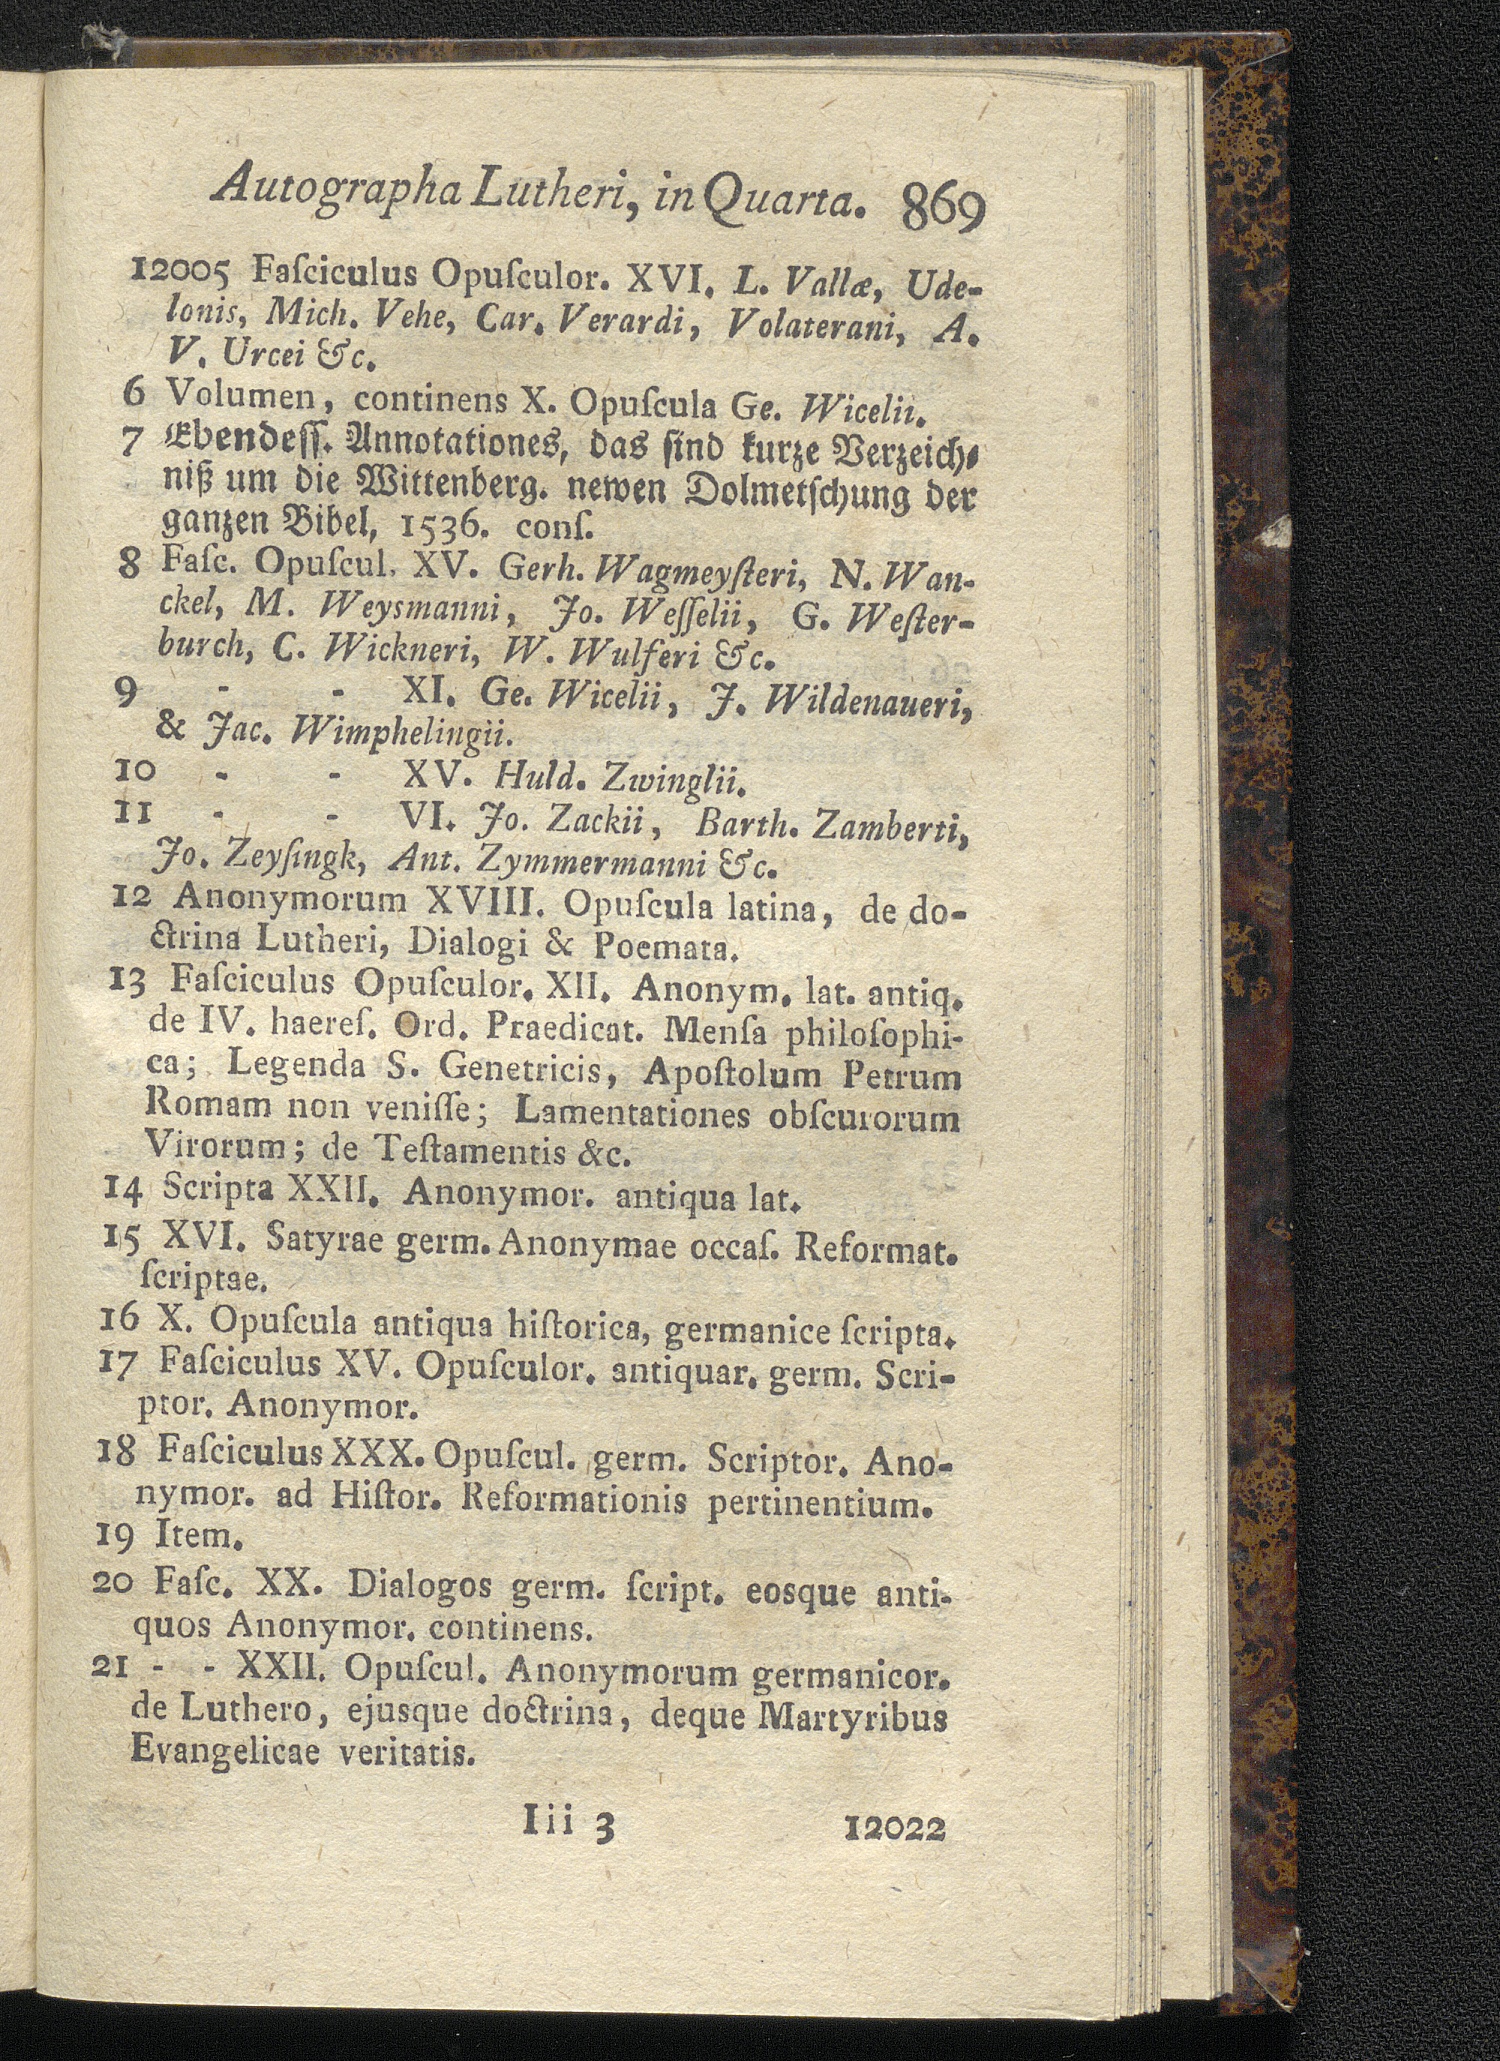 Autographa Lutheri, in Quarta. 869
12005 Faſciculus Opuſculor. XVI. L. Vallæ, Ude-
lonis, Mich. Vehe, Car. Verardi, Volaterani, A.
V. Urcei &c.
6 Volumen, continens X. Opuſcula Ge. Wicelii.
7 Ebendeſſ. Annotationes, das ſind kurze Verzeich-
niß um die Wittenberg. newen Dolmetſchung der
ganzen Bibel, 1536. conſ.
8 Faſc. Opuſcul. XV. Gerh. Wagmeyſteri, N. Wan-
ckel, M. Weysmanni, Jo. Weſſelii, G. Weſter-
burch, C. Wickneri, W. Wulferi &c.
9 - - XI. Ge. Wicelii, J. Wildenaueri,
& Jac. Wimphelingii.
10 - - XV. Huld. Zwinglii.
11 - - VI. Jo. Zackii, Barth. Zamberti,
Jo. Zeyſingk, Ant. Zymmermanni &c.
12 Anonymorum XVIII. Opuſcula latina, de do-
ctrina Lutheri, Dialogi & Poemata.
13 Faſciculus Opuſculor. XII. Anonym. lat. antiq.
de IV. haereſ. Ord. Praedicat. Menſa philoſophi-
ca; Legenda S. Genetricis, Apoſtolum Petrum
Romam non veniſſe; Lamentationes obſcurorum
Virorum; de Teſtamentis &c.
14 Scripta XXII. Anonymor. antiqua lat.
15 XVI. Satyrae germ. Anonymae occaſ. Reformat.
ſcriptae.
16 X. Opuſcula antiqua hiſtorica, germanice ſcripta.
17 Faſciculus XV. Opuſculor. antiquar. germ. Scri-
ptor. Anonymor.
18 Faſciculus XXX. Opuſcul. germ. Scriptor. Ano-
nymor. ad Hiſtor. Reformationis pertinentium.
19 Item.
20 Faſc. XX. Dialogos germ. ſcript. eosque anti-
quos Anonymor. continens.
21 - - XXII. Opuſcul. Anonymorum germanicor.
de Luthero, ejusque doctrina, deque Martyribus
Evangelicae veritatis.
Iii 3 12022